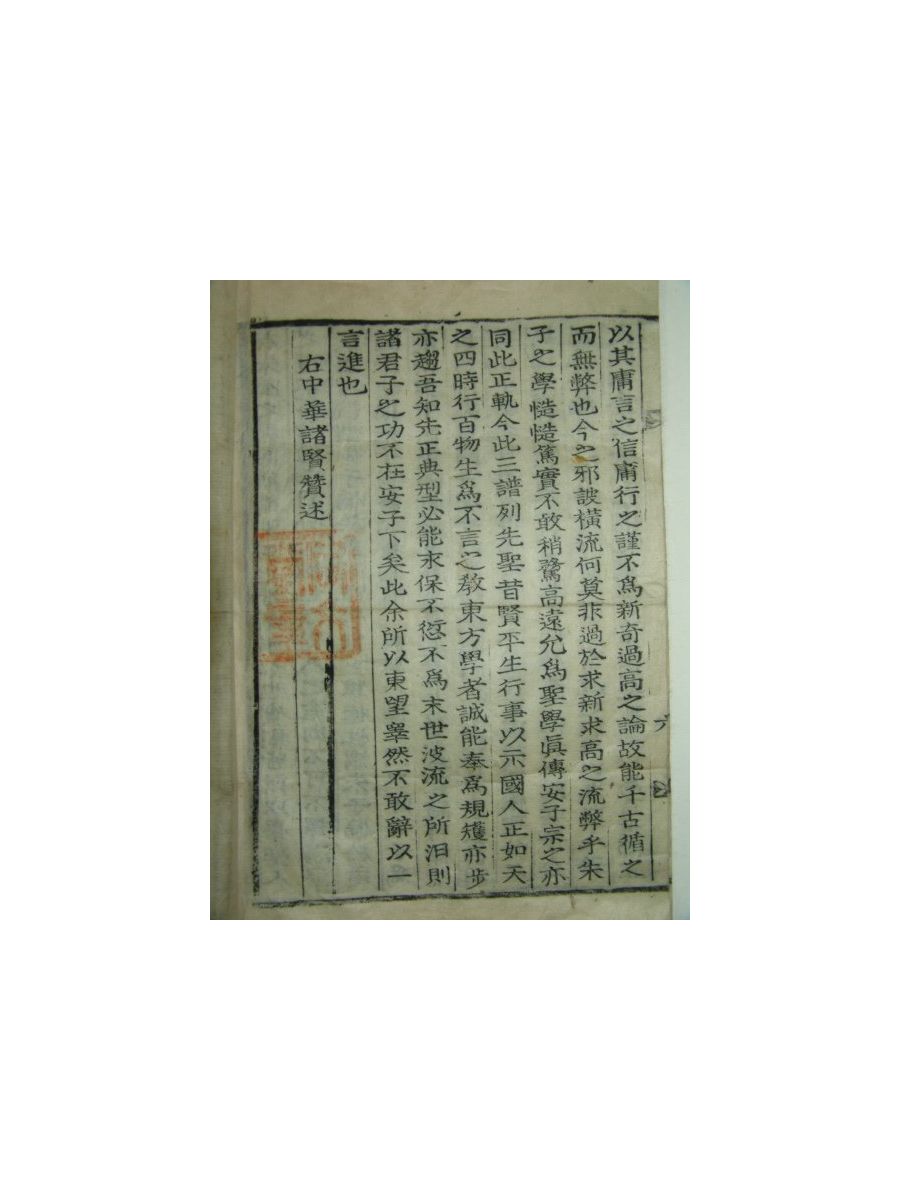 以其庸言之信庸行之謹不爲新奇過高之論故能千古循之
而無弊也今之邪詖橫流何莫非過於求新求高之流弊乎朱
子之學慥慥篤實不敢稍騖高遠允爲聖學眞傳安子宗之亦
同此正軌今此三譜列先聖昔賢平生行事以示國人正如天
之四時行百物生爲不言之敎東方學者誠能奉爲規矱亦步
亦趨吾知先正典型必能求保不愆不爲末世波流之所汨則
諸君子之功不在安子下矣此余所以東望睾然不敢辭以一
言進也
右中華諸賢贊述
六